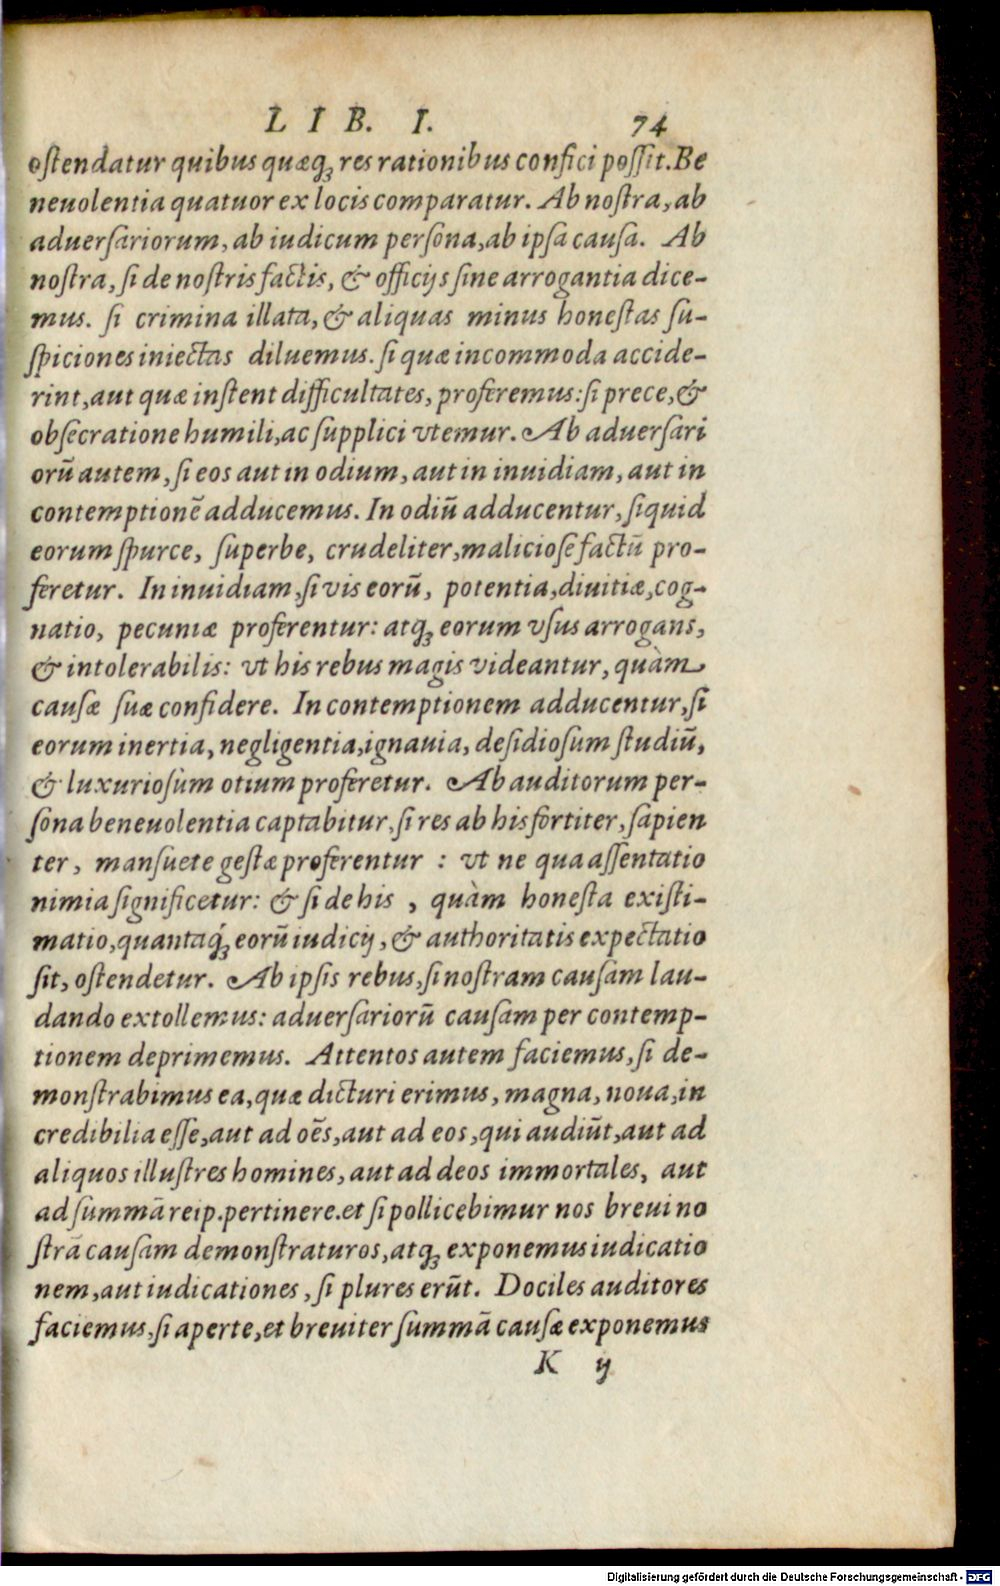 LIB. I. 74
ostendatur quibus quæq; res rationibus confici possit. Be
neuolentia quatuor ex locis comparatur. Ab nostra, ab
aduersariorum, ab iudicum persona, ab ipsa causa. Ab
nostra, si de nostris factis, & officijs sine arrogantia dice-
mus. si crimina illata, & aliquas minus honestas su-
spiciones iniectas diluemus. si quæ incommoda accide-
rint, aut quæ instent difficultates, proferemus: si prece, &
obsecratione humili, ac supplici vtemur. Ab aduersari
orũ autem, si eos aut in odium, aut in inuidiam, aut in
contemptionẽ adducemus. In odiũ adducentur, siquid
eorum spurce, superbe, crudeliter, maliciose factũ pro-
feretur. In inuidiam, si vis eorũ, potentia, diuitiæ, cog-
natio, pecuniæ proferentur: atq; eorum vsus arrogans,
& intolerabilis: vt his rebus magis videantur, quàm
causæ suæ confidere. In contemptionem adducentur, si
eorum inertia, negligentia, ignauia, desidiosum studiũ,
& luxuriosum otium proferetur. Ab auditorum per-
sona beneuolentia captabitur, si res ab his fortiter, sapien
ter, mansuete gestæ proferentur : vt ne qua assentatio
nimia significetur: & si de his , quàm honesta existi-
matio, quantaq́; eorũ iudicij, & authoritatis expectatio
sit, ostendetur. Ab ipsis rebus, si nostram causam lau-
dando extollemus: aduersariorũ causam per contemp-
tionem deprimemus. Attentos autem faciemus, si de-
monstrabimus ea, quæ dicturi erimus, magna, noua, in
credibilia esse, aut ad oẽs, aut ad eos, qui audiũt, aut ad
aliquos illustres homines, aut ad deos immortales, aut
ad summã reip. pertinere. et si pollicebimur nos breui no
strã causam demonstraturos, atq; exponemus iudicatio
nem, aut iudicationes, si plures erũt. Dociles auditores
faciemus, si aperte, et breuiter summã causæ exponemus
K ij
Digitalisierung gefördert durch die Deutsche Forschungsgemeinschaft - DFG